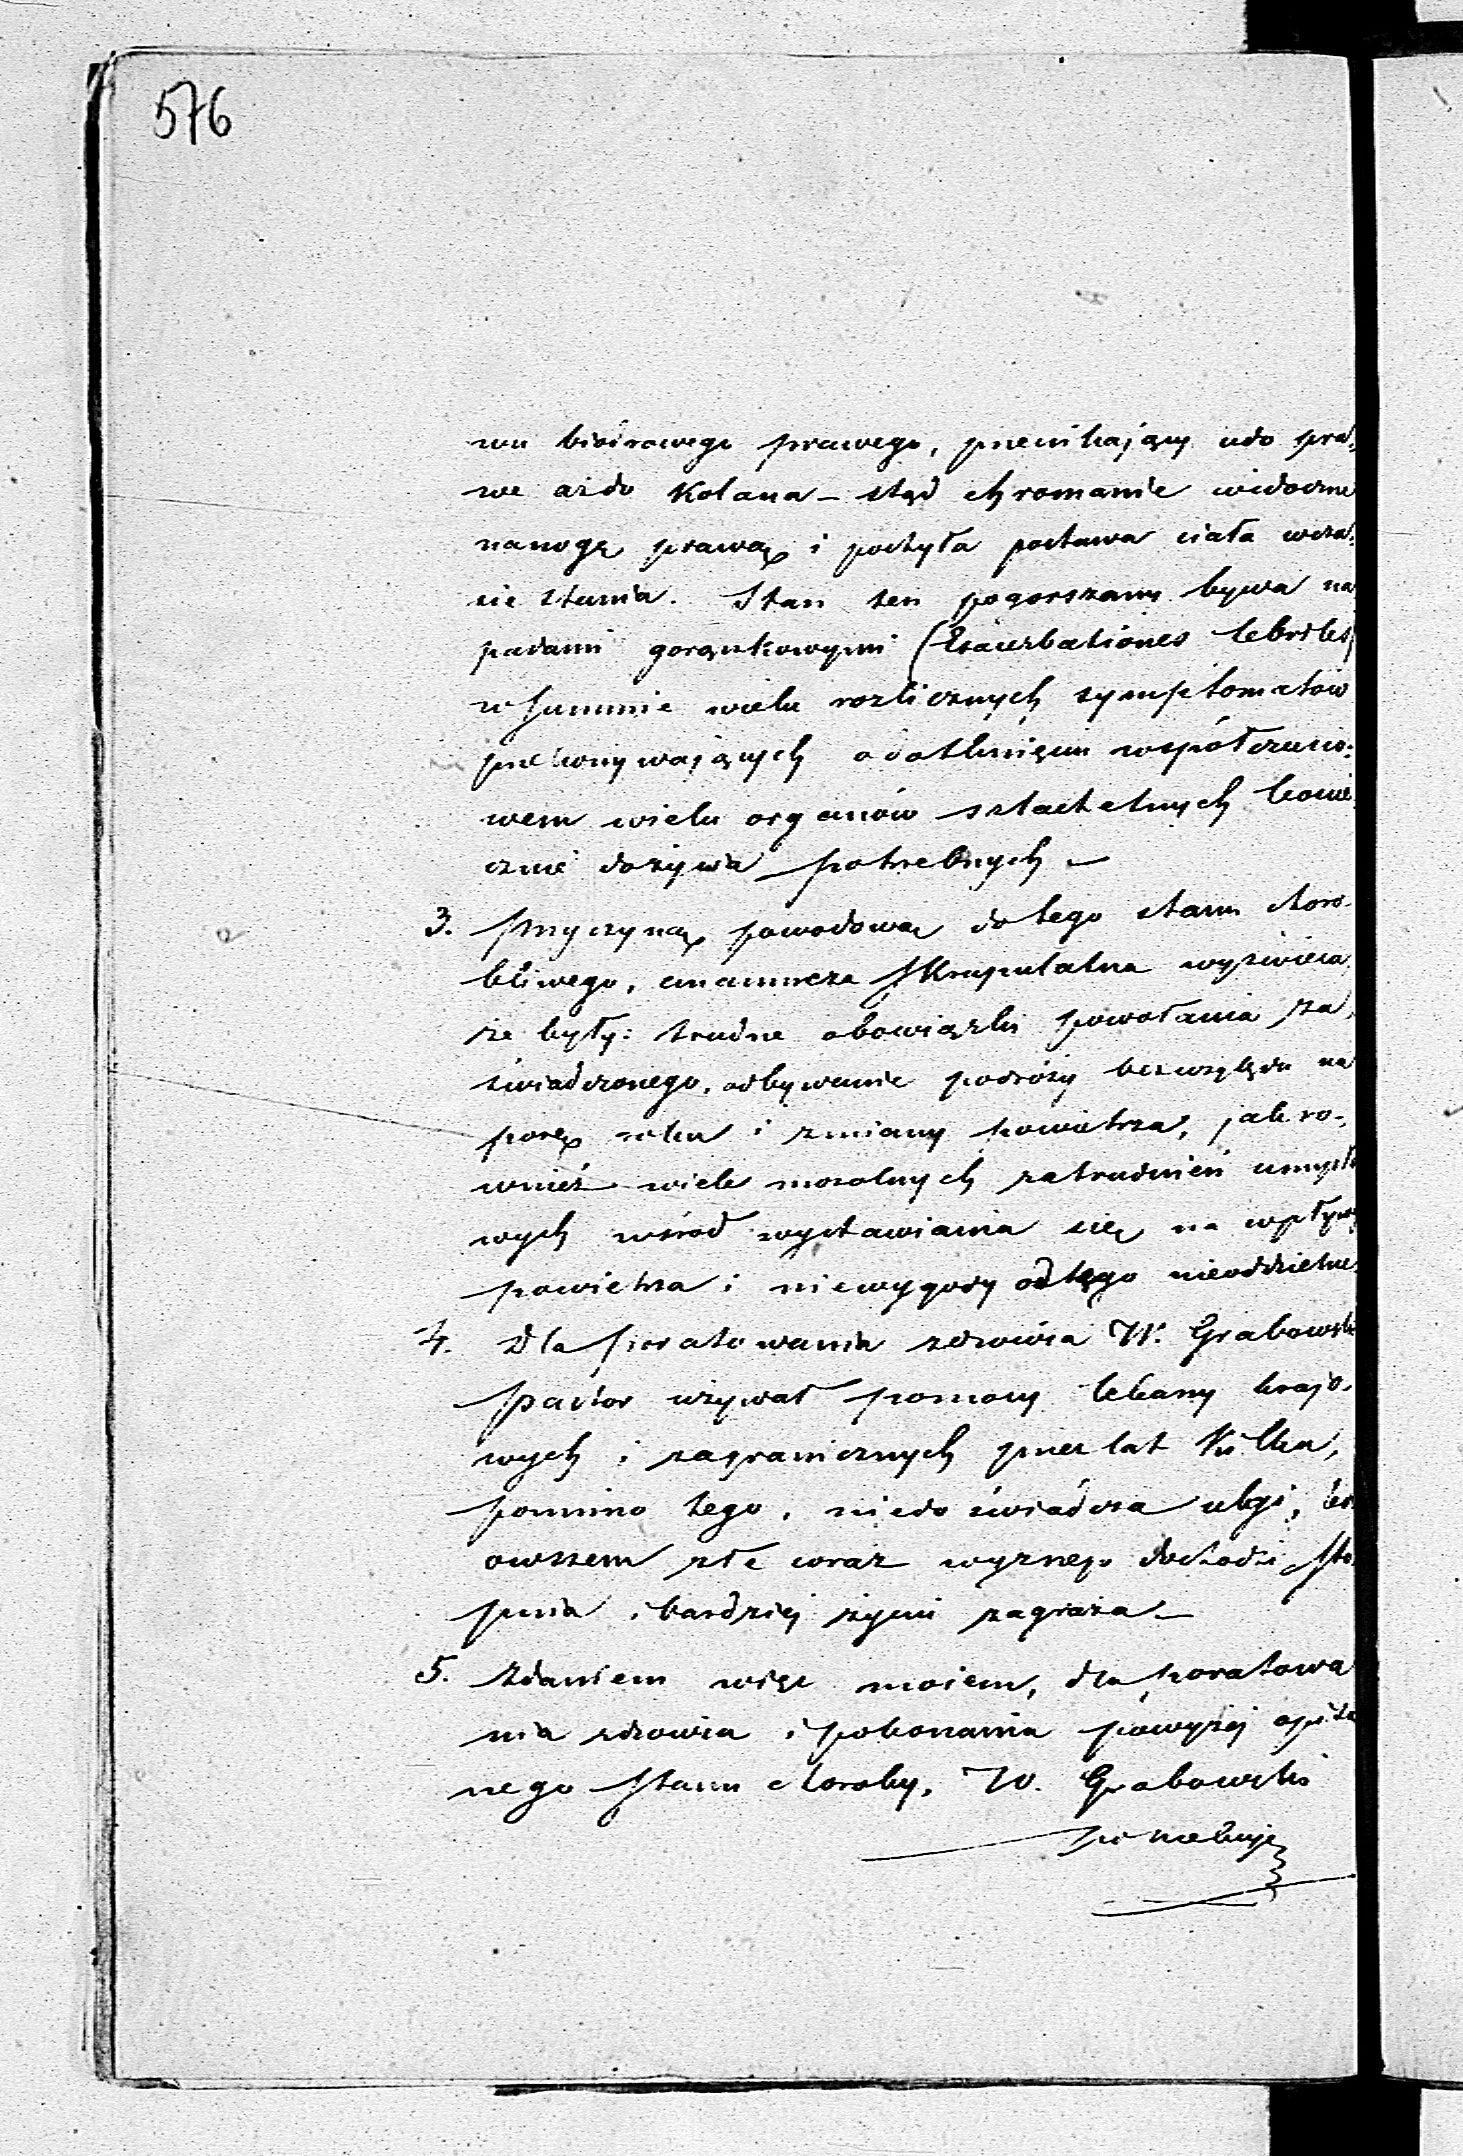 576
wu biodrowego prawego, przenikający udo pra,
we aż do kolana – stąd chromanie widoczne
na nogę prawą i pochyła postawa ciała wcza,
sie stania. Stan ten pogorszany bywa na
padami gorączkowymi (Exacerbationes febriles)
w summie wielu rozlicznych symptomatów
przekonywających o dotknięciu współczucio,
wem wielu organów szlachetnych koniecznie
cznie do życia potrzebnych –
3. Przyczyną powodową do tego stanu choro-
bliwego, anamneza skrupulatna wyświeca
że były: trudne obowiązki powołania za,
świadczonego, odbywanie podróży bez względu na
porę roku i zmiany powietrza, jak ro-
wnież wiele mozolnych zatrudnień umysło
wych wśród wystawiania się na wpływ
powietrza i niewygody od tego nieoddzielne
4. Dla poratowania zdrowia W. Grabowski
Pastor używał pomocy lekarzy krajo-
wych i zagranicznych przez lat kilka,
pomimo tego, niedoświadcza ulgi,
owszem złe coraz wyższego dochodzi sto
pnia i bardziej życiu zagraża –
5. Zdaniem więc moiem, dla poratowa
nia zdrowia i pokonania powyżej opisa
nego stanu choroby, W. Grabowski
potrzebuje